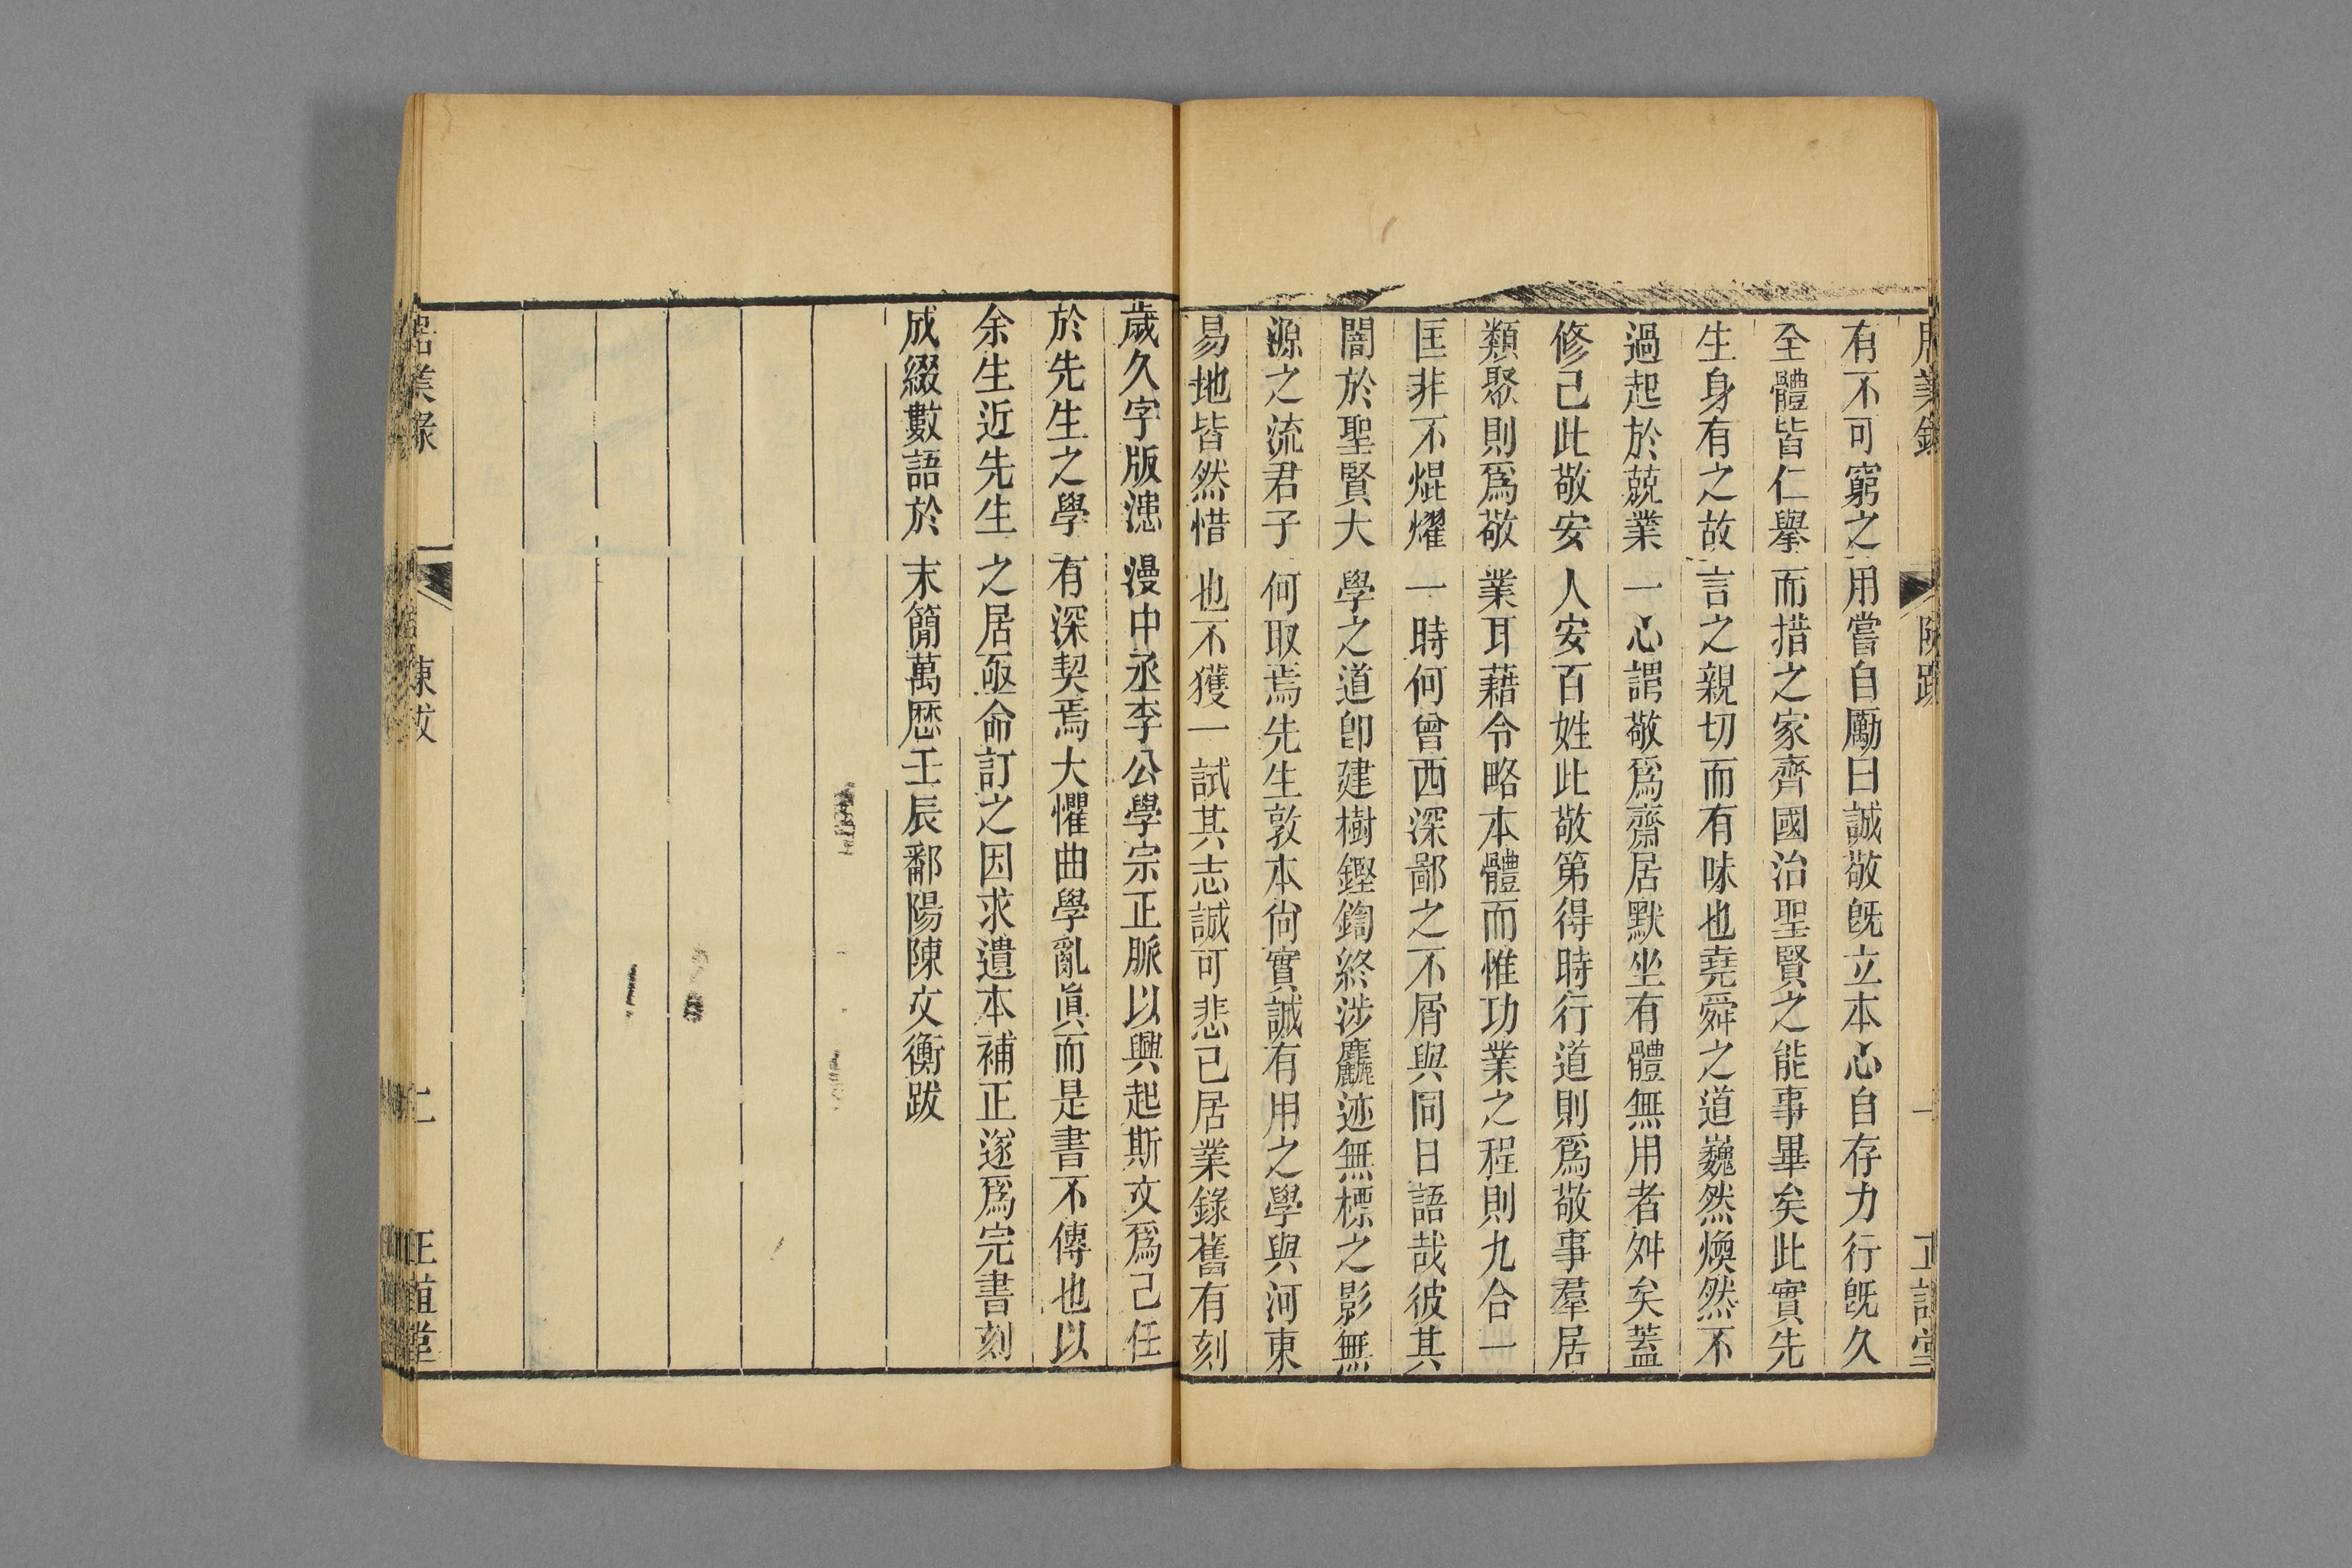 居業錄 陳跋 一 正誼堂
有不可窮之用嘗自勵曰誠敬旣立本心自存力行旣久
全體皆仁舉而措之家齊國治聖賢之能事畢矣此實先
生身有之故言之親切而有味也堯舜之道巍然煥然不
過起於兢業一心謂敬爲齋居默坐有體無用者舛矣蓋
修己此敬安人安百姓此敬第得時行道則爲敬事羣居
類聚則爲敬業耳藉令略本體而惟功業之程則九合一
匡非不焜燿一時何曾西深鄙之不屑與同日語哉彼其
闇於聖賢大學之道卽建樹鏗鍧終涉麤迹無標之影無
源之流君子何取焉先生敦本尙實誠有用之學與河東
易地皆然惜也不獲一試其志誠可悲已居業錄舊有刻
歲久字版漶漫中丞李公學宗正脈以興起斯文爲己任
於先生之學有深契焉大懼曲學亂眞而是書不傳也以
余生近先生之居亟命訂之因求遺本補正遂爲完書刻
成綴數語於末簡萬歷壬辰鄱陽陳文衡跋
居業錄 陳跋 二 正誼堂